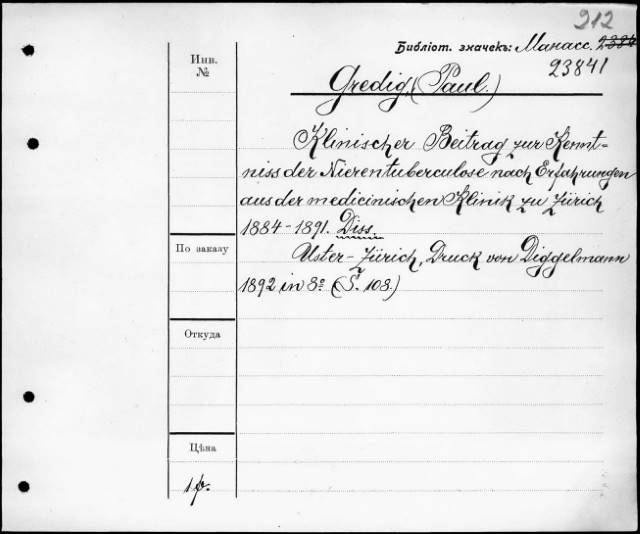 212
Библіот. значекъ: Манасс. 2384
23841
Инв.
№
Gredig, (Paul.)
Klinischer Beitrag zur Kennt-
niss der Nierentuberculose nach Erfahrungen
aus der medicinischen Klinik zu Zürich
1884-1891. Diss.
По заказу
Uster-Zürich, Druck von Diggelmann
1892 in 8º (S. 108.)
Откуда
Цѣна
1 р.